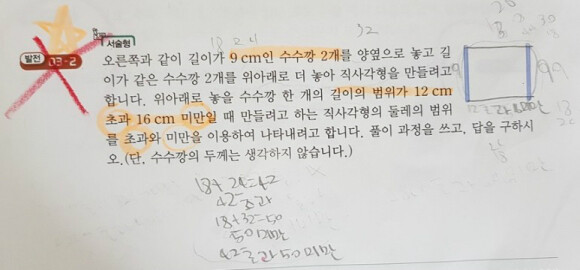 서술형
발전 03-2
오른쪽과 같이 길이가 9 cm인 수수깡 2개를 양옆으로 놓고 길
이가 같은 수수깡 2개를 위아래로 더 놓아 직사각형을 만들려고
합니다. 위아래로 놓을 수수깡 한 개의 길이의 범위가 12 cm
초과 16 cm 미만일 때 만들려고 하는 직사각형의 둘레의 범위
를 초과와 미만을 이용하여 나타내려고 합니다. 풀이 과정을 쓰고, 답을 구하시
오. (단, 수수깡의 두께는 생각하지 않습니다.)
18 24
32
9
18+24=42
42초과
18+32=50
50미만
42초과 50미만